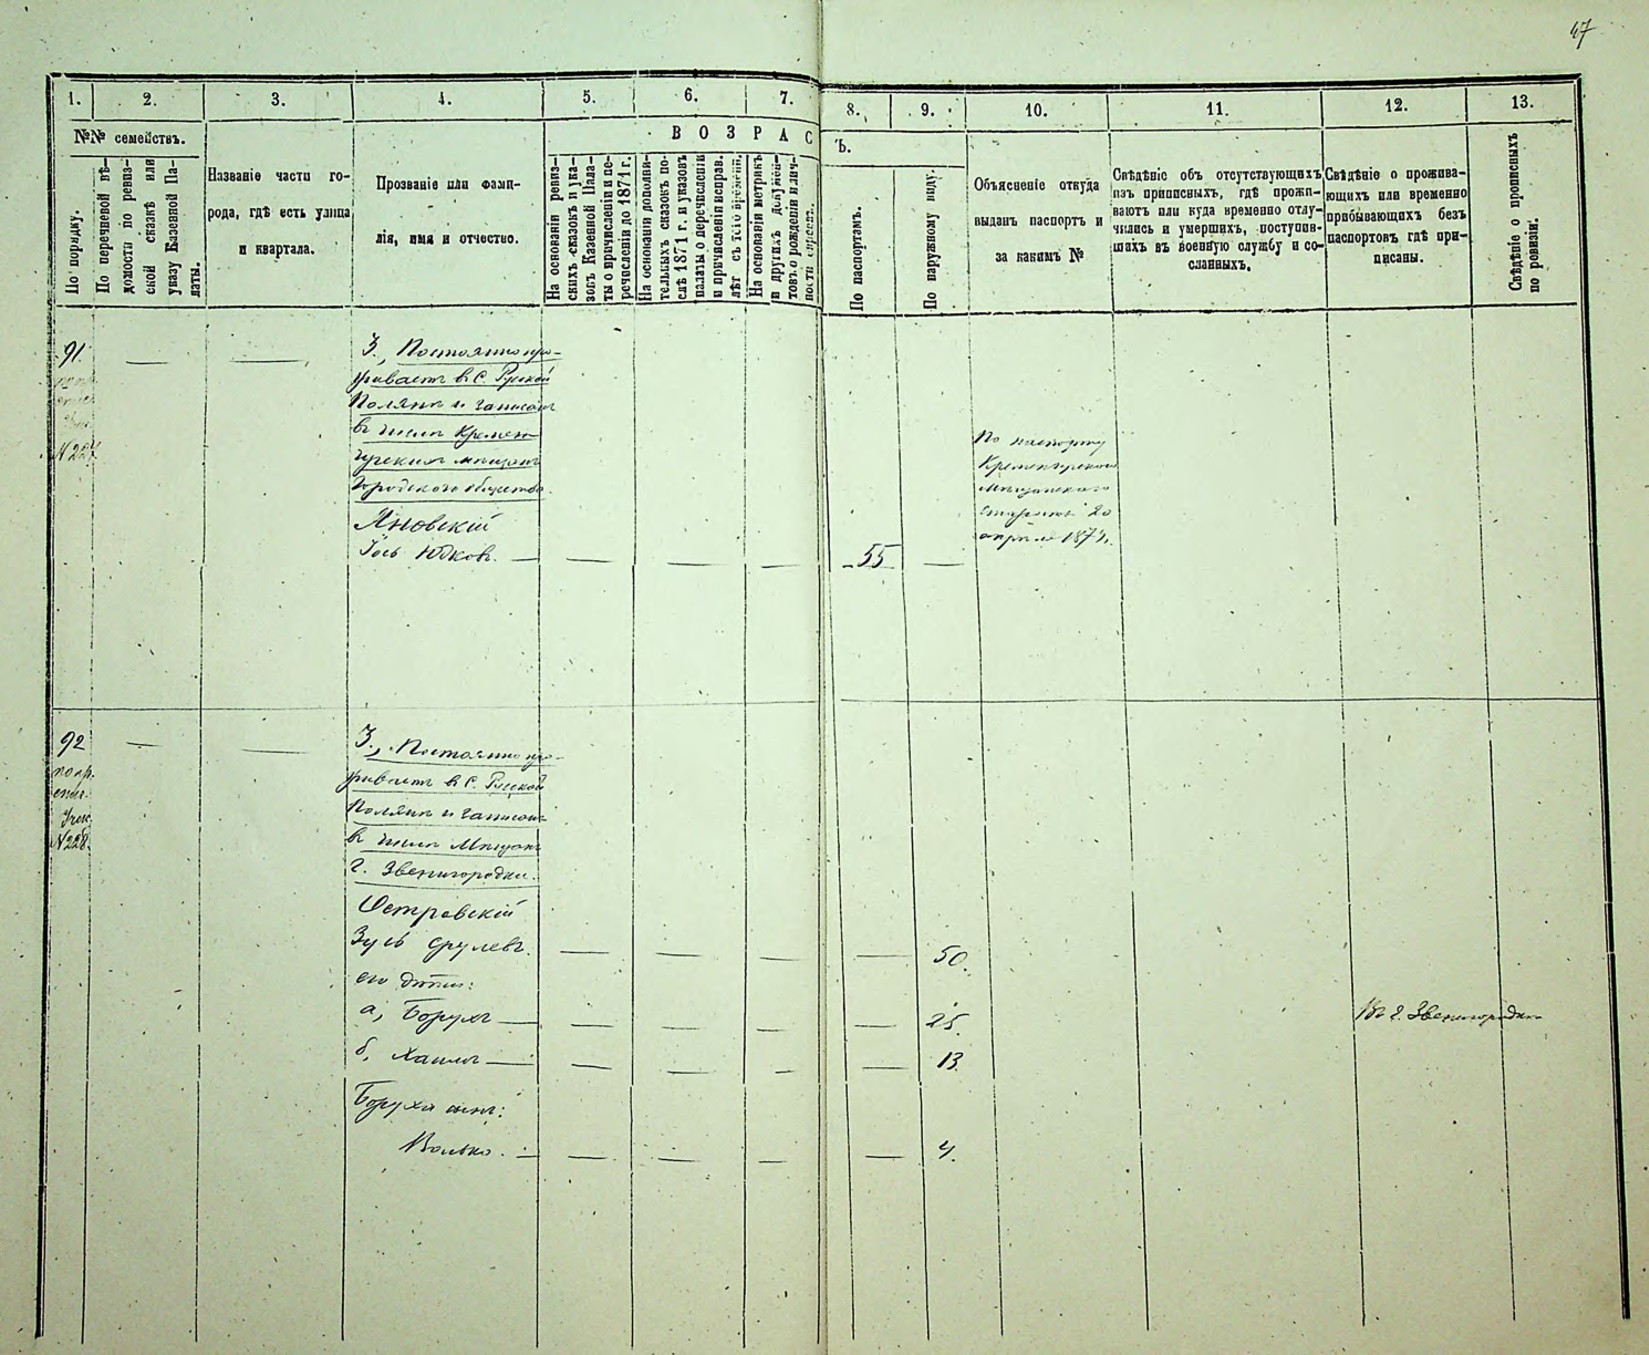 47
1. 2. 3. 4. 5. 6. 7. 8. 9. 10. 11. 12. 13.
№№ семействъ.
По порядку.
По перечневой вѣ-
домости по ревиз-
ской сказкѣ или
указу Казенной Па-
латы.
Названіе части го-
рода, гдѣ есть улица
и квартала.
Прозваніе или фами-
лія, имя и отчество.
ВОЗРАС
Ъ.
На основаніи ревиз-
скихъ сказокъ и ука-
зовъ Казенной Пала-
ты о причисленіи и пе-
речисленіи до 1871 г.
На основаніи дополни-
тельныхъ сказокъ по-
слѣ 1871 г. и указовъ
палаты о перечисленіи
и причисленіи исправ.
лѣт съ того времени.
На основаніи метрикъ
и другихъ докумен-
товъ о рожденіи и лич-
ности
По паспортамъ.
По наружному виду.
Объясненіе откуда
выданъ паспортъ и
за какимъ №
Свѣдѣніе объ отсутствующихъ
изъ приписныхъ, гдѣ прожи-
ваютъ или куда временно отлу-
чились и умершихъ, поступив-
шихъ въ военную службу и со-
сланныхъ.
Свѣдѣніе о прожива-
ющихъ или временно
прибывающихъ безъ
паспортовъ гдѣ при-
писаны.
Свѣдѣніе о прописныхъ
по ревизіи.
91.
N 227
3., Постоянно про-
живаетъ въ С. Русской
Полянѣ и записанъ
въ числѣ Кремен-
чугскихъ мѣщанъ
Городского общества.
Яновскій
Іось Юдковъ. — 55
По паспорту
Кременчугскаго
Мѣщанскаго
Старосты 20
апрѣля 1874.
92
N 228.
3., Постоянно про-
живаетъ въ С. Русской
Полянѣ и записанъ
въ числѣ Мѣщанъ
г. Звенигородки.
Островскій
Зусь Срулевъ. — 50.
его дѣти:
а, Борухъ — 25. Въ г. Звенигородкѣ
б, Хаимъ — 13.
Боруха сынъ:
Волько. — 4.